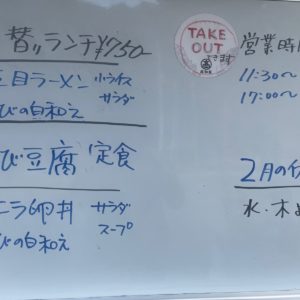 替リランチ¥750
五目ラーメン 小ライス
サラダ
びの白和え
び豆腐 定食
ニラ卵丼 サラダ
スープ
びの白和え
TAKE
OUT
できます
営業時
11:30〜
17:00〜
2月の
水・木